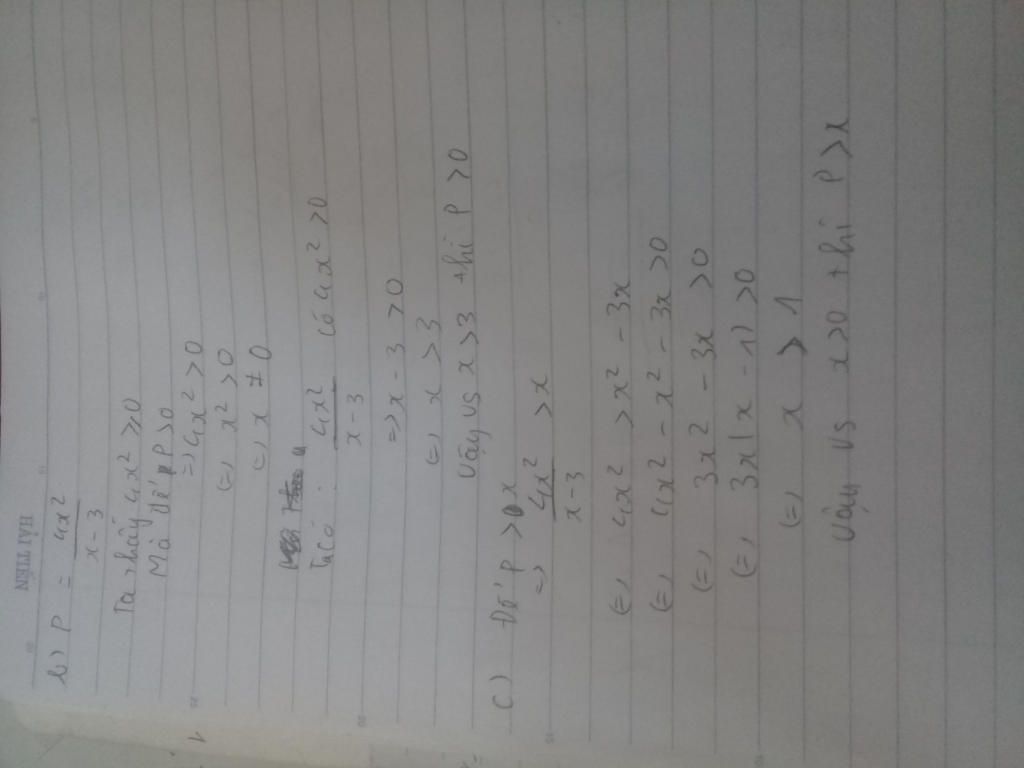 HẢI TIẾN
b) P = 4x² / x - 3
Ta thấy 4x² ≥ 0
Mà để P > 0
=> 4x² > 0
(=) x² > 0
(=) x ≠ 0
Ta có: 4x² / x - 3 có 4x² > 0
=> x - 3 > 0
(=) x > 3
Vậy vs x > 3 thì P > 0
c) Để P > x
=> 4x² / x - 3 > x
(=) 4x² > x² - 3x
(=) 4x² - x² - 3x > 0
(=) 3x² - 3x > 0
(=) 3x(x - 1) > 0
(=) x > 1
Vậy vs x > 0 thì P > x